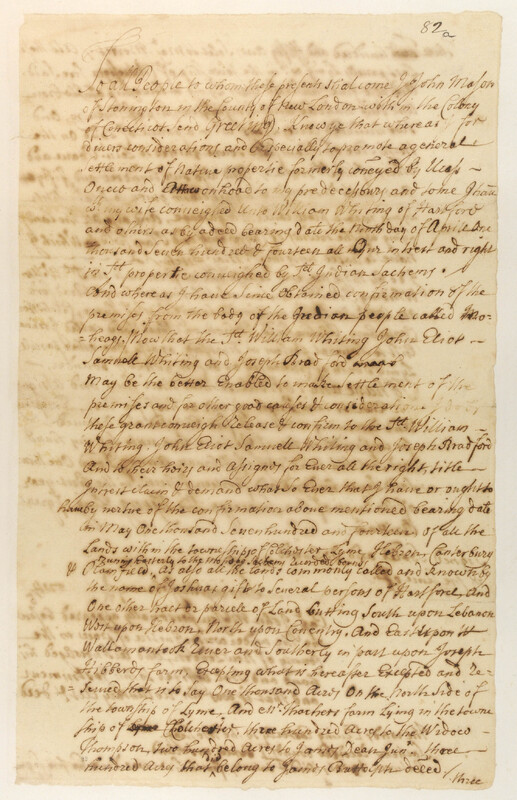 82a
To all People to whom these presents shall come I John Mason
of Stonington in the County of New London within the Colony
of Conecticot send Greeting, Know ye that whereas I for
divers considerations and Especially to promote a general
settlement of Native propertie formerly conveyed by Ucass
Oneco and Attawonhood to my predecessours and some I have
by my wife conveighed unto William Whiting of Hartford
and others as by a deed bearing date the ninth day of Aprill One
thousand Seven hundred & fourteen all our interest and right
in Sd. propertie conveighed by Sd. Indian Sachems
And whereas I have Since Obtained confirmation of the
premises from the body of the Indian people called Mo-
=heags, Now that the Sd. William Whiting John Eliot
Samuell Whiting and Joseph Bradford
May be the better Enabled to make settlement of the
premises and for other good causes & considerations
these grant conveigh Release & confirm to the Sd. William
Whiting John Eliot Samuell Whiting and Joseph Bradford
And to their heirs and Assignes for Ever all the right, title
Interest claim & demand what So Ever that I have or ought to
have by vertue of the confirmation above mentioned bearing date
in May One thousand Seven hundred and fourteen of all the
Lands within the townships of Colchester, Lyme Hebron Canterbury
& Plainfield, As also all the lands commonly called and known by
the name of Joshuas gift to Several persons of Hartford, And
One other tract or parcile of Land butting South upon Lebanon
West upon Hebron, North upon Coventry, And East upon
Wallamantock River and Southerly in part upon Joseph
Hibberds farm, Excepting what is hereafter Excepted and Re-
=served that is to Say One thousand Acres On the North Side of
the township of Lyme, And Thachers farm Lying in the towne
ship of Colchester, three hundred Acres to the Widow
Thompson, two hundred Acres to James Dean Junr. three
hundred Acres that belong to James decēd
three